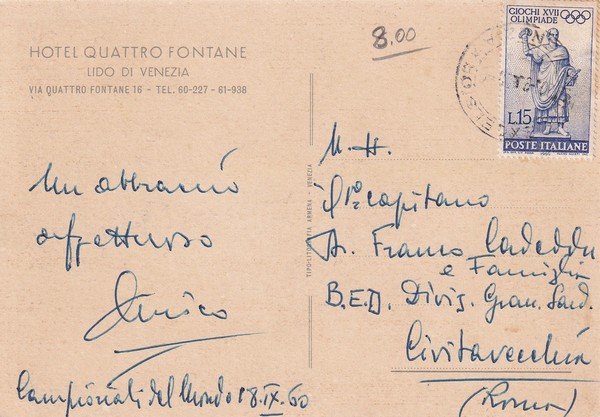 HOTEL QUATTRO FONTANE
LIDO DI VENEZIA
VIA QUATTRO FONTANE 16 - TEL. 60-227 - 61-938
8.00
GIOCHI XVII
OLIMPIADE
L.15
POSTE ITALIANE
Un abbraccio
affettuoso
Enrico
Campionati del Mondo 18.IX.60
TIPO-LITOGRAFIA ARMENA - VENEZIA
N. H.
1° capitano
Dr. Franco Cadeddu
e Famiglia
B.E.D. Divis. Gran. Sard.
Civitavecchia
(Roma)